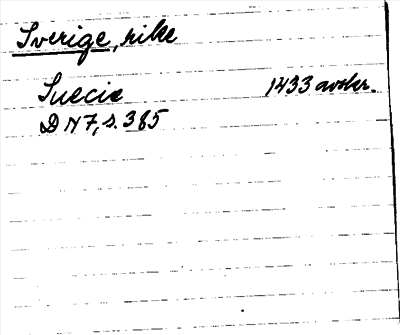 Sverige, rike
Suecie 1433 avskr.
DN 7, s. 385